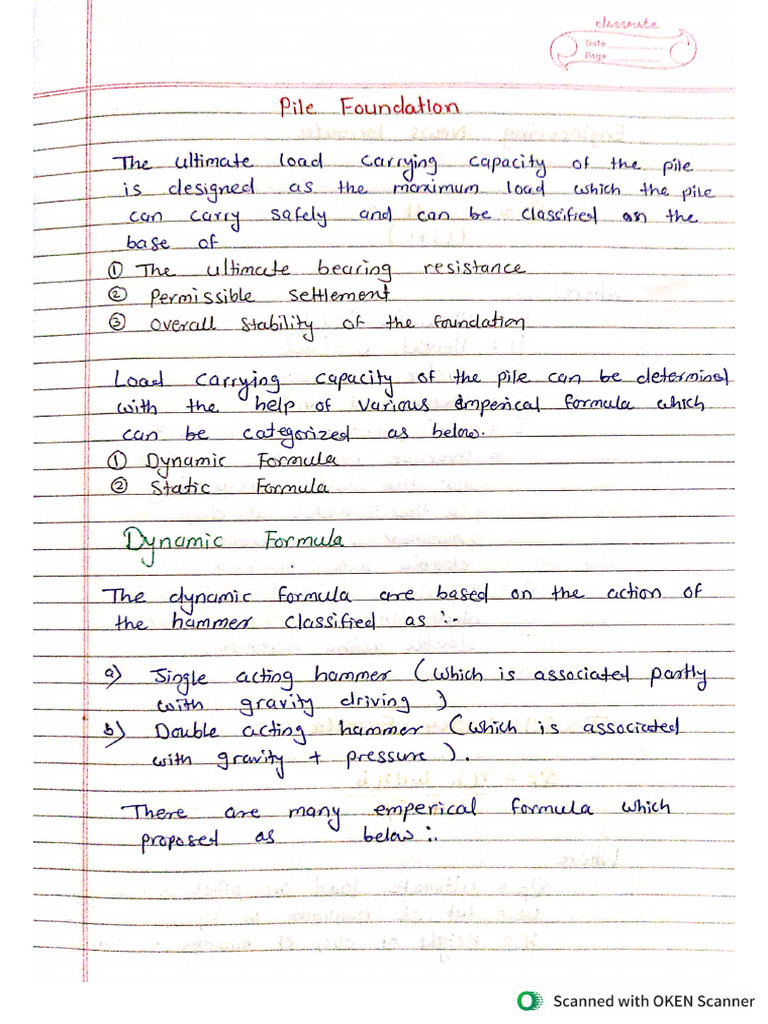 classmate
Date
Page
Pile Foundation
The ultimate load carrying capacity of the pile
is designed as the maximum load which the pile
can carry safely and can be classified on the
base of
① The ultimate bearing resistance
② Permissible settlement
③ Overall stability of the foundation
Load carrying capacity of the pile can be determined
with the help of various emperical formula which
can be categorized as below.
① Dynamic Formula
② Static Formula
Dynamic Formula
The dynamic formula are based on the action of
the hammer classified as :-
a) Single acting hammer (which is associated partly
with gravity driving)
b) Double acting hammer (which is associated
with gravity + pressure).
There are many emperical formula which
proposed as below :.
Scanned with OKEN Scanner